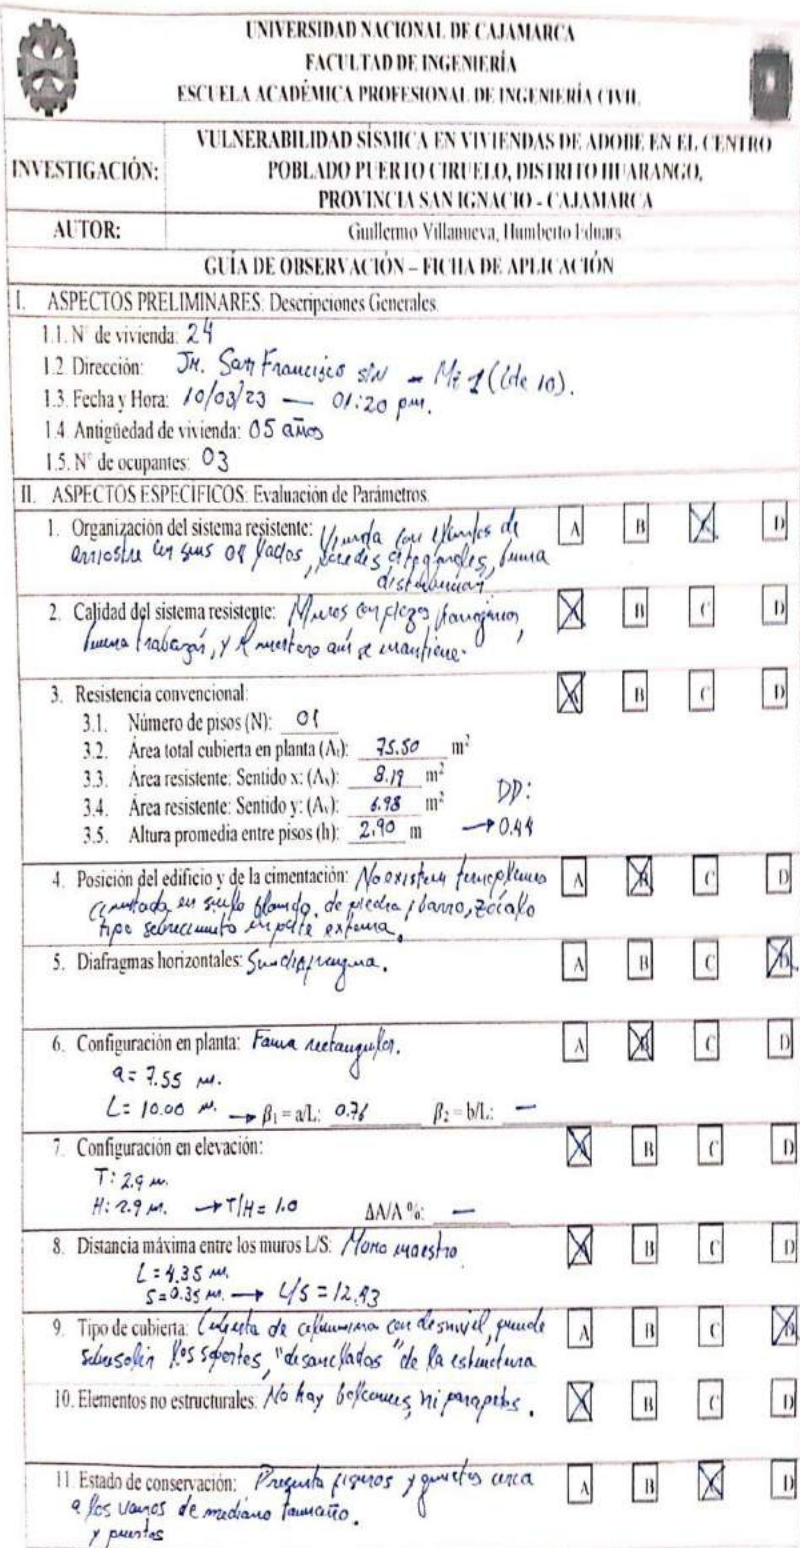 UNIVERSIDAD NACIONAL DE CAJAMARCA
FACULTAD DE INGENIERÍA
ESCUELA ACADÉMICA PROFESIONAL DE INGENIERÍA CIVIL
INVESTIGACIÓN:
VULNERABILIDAD SÍSMICA EN VIVIENDAS DE ADOBE EN EL CENTRO
POBLADO PUERTO CIRUELO, DISTRITO HUARANGO,
PROVINCIA SAN IGNACIO - CAJAMARCA
AUTOR: Guillermo Villanueva, Humberto Eduars
GUÍA DE OBSERVACIÓN – FICHA DE APLICACIÓN
I. ASPECTOS PRELIMINARES: Descripciones Generales
1.1. N° de vivienda: 24
1.2. Dirección: Jr. San Francisco s/N – Mz 1 (Lote 10).
1.3. Fecha y Hora: 10/03/23 — 01:20 pm.
1.4. Antigüedad de vivienda: 05 años
1.5. N° de ocupantes: 03
II. ASPECTOS ESPECIFICOS: Evaluación de Parámetros
1. Organización del sistema resistente: con de A B C D
arriostre en sus lados, paredes ortogonales, buena
2. Calidad del sistema resistente: Muros con piezas A B C D
buena trabazón, y mortero aún se mantiene.
3. Resistencia convencional: A B C D
3.1. Número de pisos (N): 01
3.2. Área total cubierta en planta (At): 75.50 m²
3.3. Área resistente: Sentido x: (Ax): 8.19 m²
3.4. Área resistente: Sentido y: (Ay): 6.98 m² DD:
3.5. Altura promedia entre pisos (h): 2.90 m → 0.44
4. Posición del edificio y de la cimentación: No existen A B C D
en suelo blando, de piedra y barro, zócalo
tipo sobrecimiento en parte externa.
5. Diafragmas horizontales: Sin diafragma. A B C D
6. Configuración en planta: Forma rectangular. A B C D
a = 7.55 m.
L = 10.00 m. → β1 = a/L: 0.76 β2 = b/L: —
7. Configuración en elevación: A B C D
T: 2.9 m.
H: 2.9 m. → T/H = 1.0 ΔA/A %: —
8. Distancia máxima entre los muros L/S: Muro maestro A B C D
L = 4.35 m.
S = 0.35 m. → L/S = 12.43
9. Tipo de cubierta: Cubierta de calamina con desnivel, A B C D
los soportes, de la estructura
10. Elementos no estructurales: No hay balcones, ni parapetos. A B C D
11. Estado de conservación: Presenta fisuras y grietas cerca A B C D
a los vanos de mediano tamaño.
y puertas